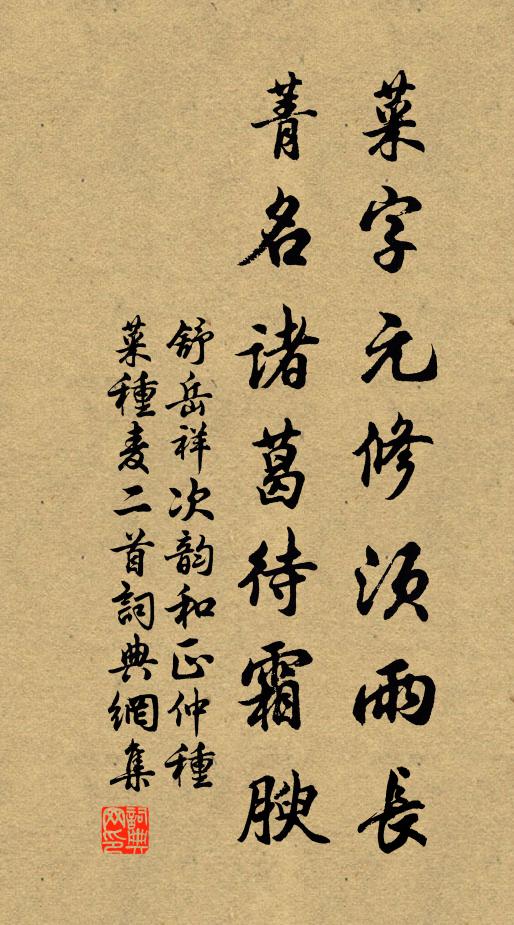 菜字元修須雨長
菁名諸葛待霜腴
舒岳祥次韵和正仲種
菜種麦二首詞典網集
詞典网印